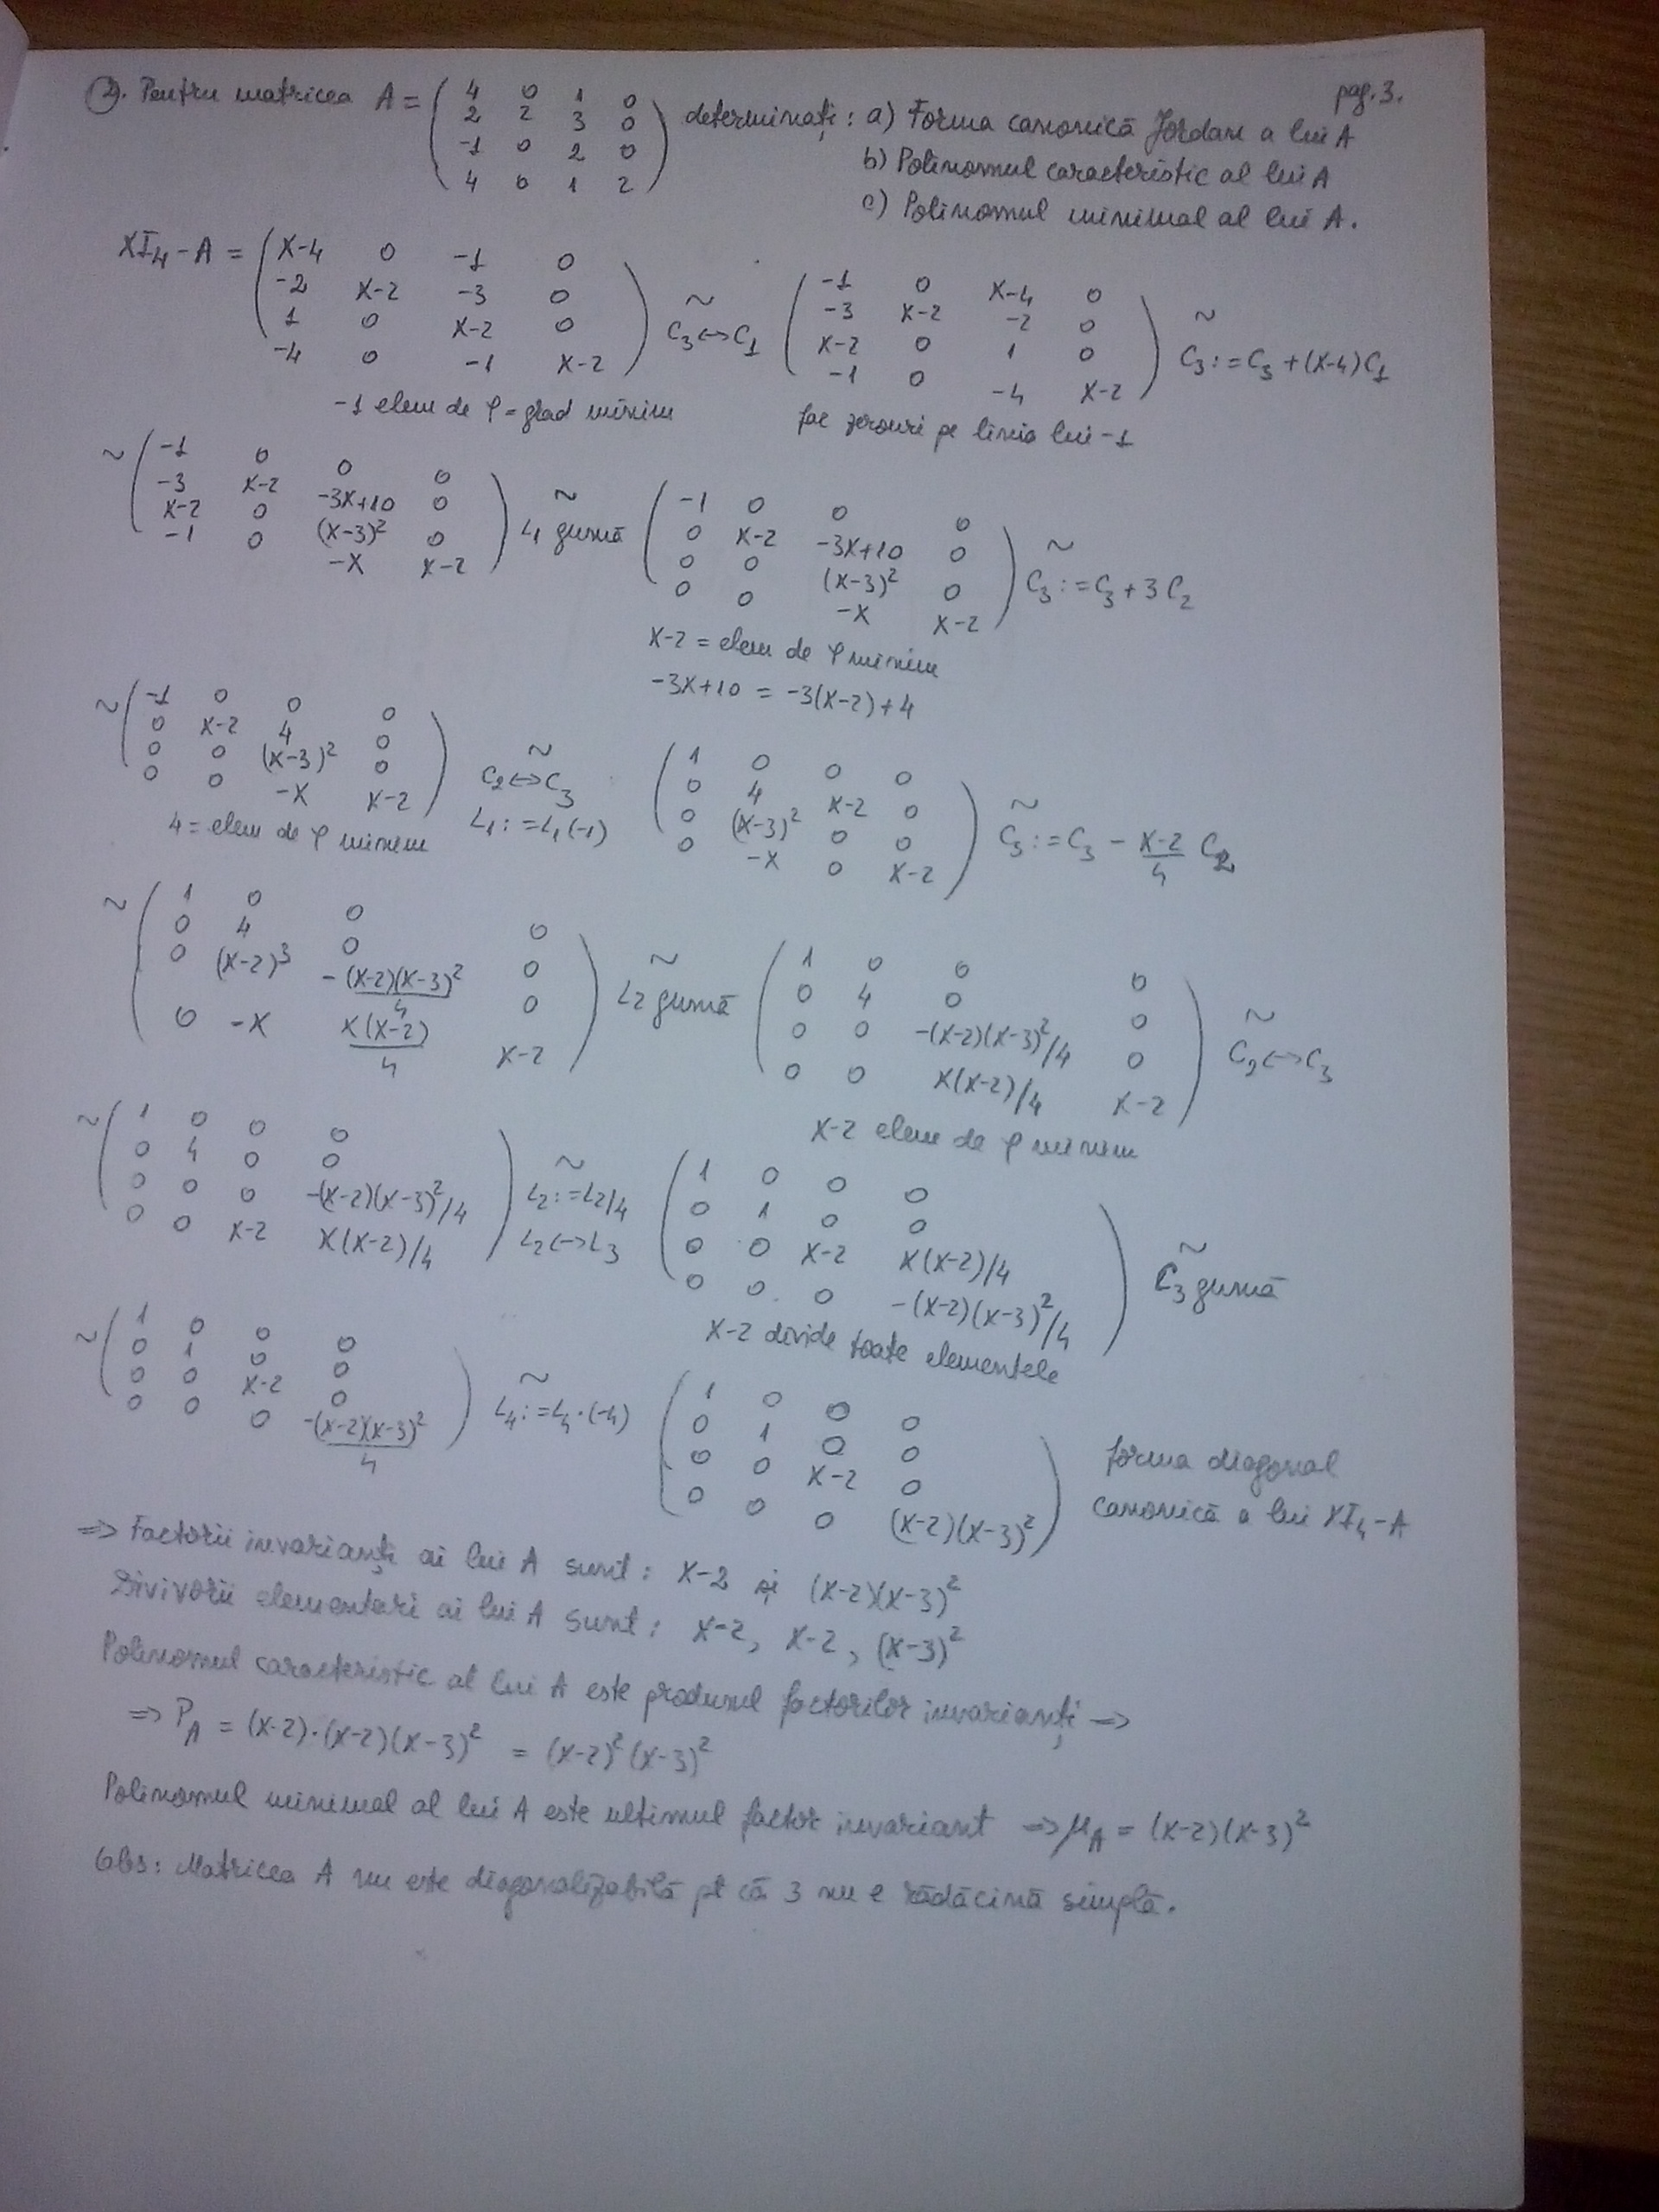 pag. 3.
2. Pentru matricea A = ( 4 0 1 0 ; 2 2 3 0 ; -1 0 2 0 ; 4 0 1 2 ) determinați : a) Forma canonică Jordan a lui A
b) Polinomul caracteristic al lui A
c) Polinomul minimal al lui A.
XI₄-A = ( X-4 0 -1 0 ; -2 X-2 -3 0 ; 1 0 X-2 0 ; -4 0 -1 X-2 ) ~ C₃↔C₁ ( -1 0 X-4 0 ; -3 X-2 -2 0 ; X-2 0 1 0 ; -1 0 -4 X-2 ) ~ C₃:=C₃+(X-4)C₁
-1 elem de φ = grad minim fac zerouri pe linia lui -1
~ ( -1 0 0 0 ; -3 X-2 -3X+10 0 ; X-2 0 (X-3)² 0 ; -1 0 -X X-2 ) ~ L₁ gumă ( -1 0 0 0 ; 0 X-2 -3X+10 0 ; 0 0 (X-3)² 0 ; 0 0 -X X-2 ) ~ C₃:=C₃+3C₂
X-2 = elem de φ minim
-3X+10 = -3(X-2)+4
~ ( -1 0 0 0 ; 0 X-2 4 0 ; 0 0 (X-3)² 0 ; 0 0 -X X-2 ) ~ C₂↔C₃ L₁:=L₁(-1) ( 1 0 0 0 ; 0 4 X-2 0 ; 0 (X-3)² 0 0 ; 0 -X 0 X-2 ) ~ C₃:=C₃ - (X-2)/4 C₂
4 = elem de φ minim
~ ( 1 0 0 0 ; 0 4 0 0 ; 0 (X-2)³ -(X-2)(X-3)²/4 0 ; 0 -X X(X-2)/4 X-2 ) ~ L₂ gumă ( 1 0 0 0 ; 0 4 0 0 ; 0 0 -(X-2)(X-3)²/4 0 ; 0 0 X(X-2)/4 X-2 ) ~ C₂↔C₃
X-2 elem de φ minim
~ ( 1 0 0 0 ; 0 4 0 0 ; 0 0 0 -(X-2)(X-3)²/4 ; 0 0 X-2 X(X-2)/4 ) ~ L₂:=L₂/4 L₂↔L₃ ( 1 0 0 0 ; 0 1 0 0 ; 0 0 X-2 X(X-2)/4 ; 0 0 0 -(X-2)(X-3)²/4 ) ~ C₃ gumă
X-2 divide toate elementele
~ ( 1 0 0 0 ; 0 1 0 0 ; 0 0 X-2 0 ; 0 0 0 -(X-2)(X-3)²/4 ) ~ L₄:=L₄·(-4) ( 1 0 0 0 ; 0 1 0 0 ; 0 0 X-2 0 ; 0 0 0 (X-2)(X-3)² ) forma diagonal
canonică a lui XI₄-A
=> Factorii invarianți ai lui A sunt : X-2 și (X-2)(X-3)²
Divivorii elementari ai lui A sunt : X-2, X-2, (X-3)²
Polinomul caracteristic al lui A este produsul factorilor invarianți =>
=> P_A = (X-2)·(X-2)(X-3)² = (X-2)²(X-3)²
Polinomul minimal al lui A este ultimul factor invariant => μ_A = (X-2)(X-3)²
Obs: Matricea A nu este diagonalizabilă pt că 3 nu e rădăcină simplă.